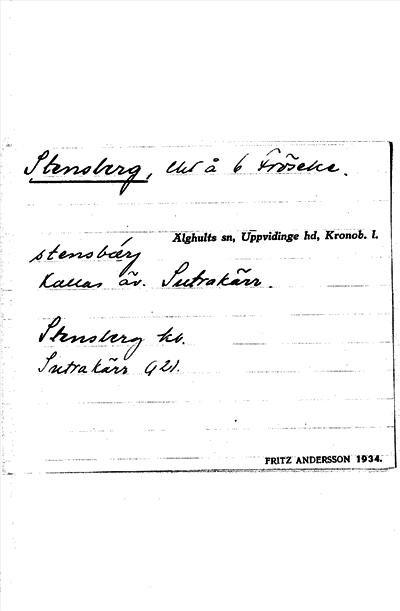 Stensberg, lht å 6 Fröseke.
Älghults sn, Uppvidinge hd, Kronob. l.
stensbærj
Kallas äv. Sutrakärr.
Stensberg kb.
Sutrakärr G 21.
FRITZ ANDERSSON 1934.